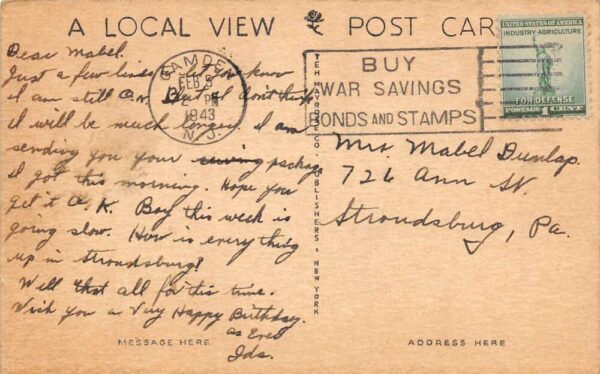 A LOCAL VIEW POST CAR
UNITED STATES OF AMERICA
INDUSTRY AGRICULTURE
FOR DEFENSE
POSTAGE 1 CENT
CAMDEN
FEB 5
PM
1943
N.J.
BUY
WAR SAVINGS
BONDS AND STAMPS
Dear Mabel.
Just a few lines you know
I am still O.K. But I don't think
it will be much longer. I am
sending you your sewing package
I got this morning. Hope you
get it O.K. Boy this week is
going slow. How is everything
up in Stroudsburg?
Well that all for this time.
Wish you a Very Happy Birthday.
as Ever
Ida.
MESSAGE HERE
MAYROSE CO. PUBLISHERS. NEW YORK
Mrs Mabel Dunlap.
726 Ann St.
Stroudsburg, Pa.
ADDRESS HERE